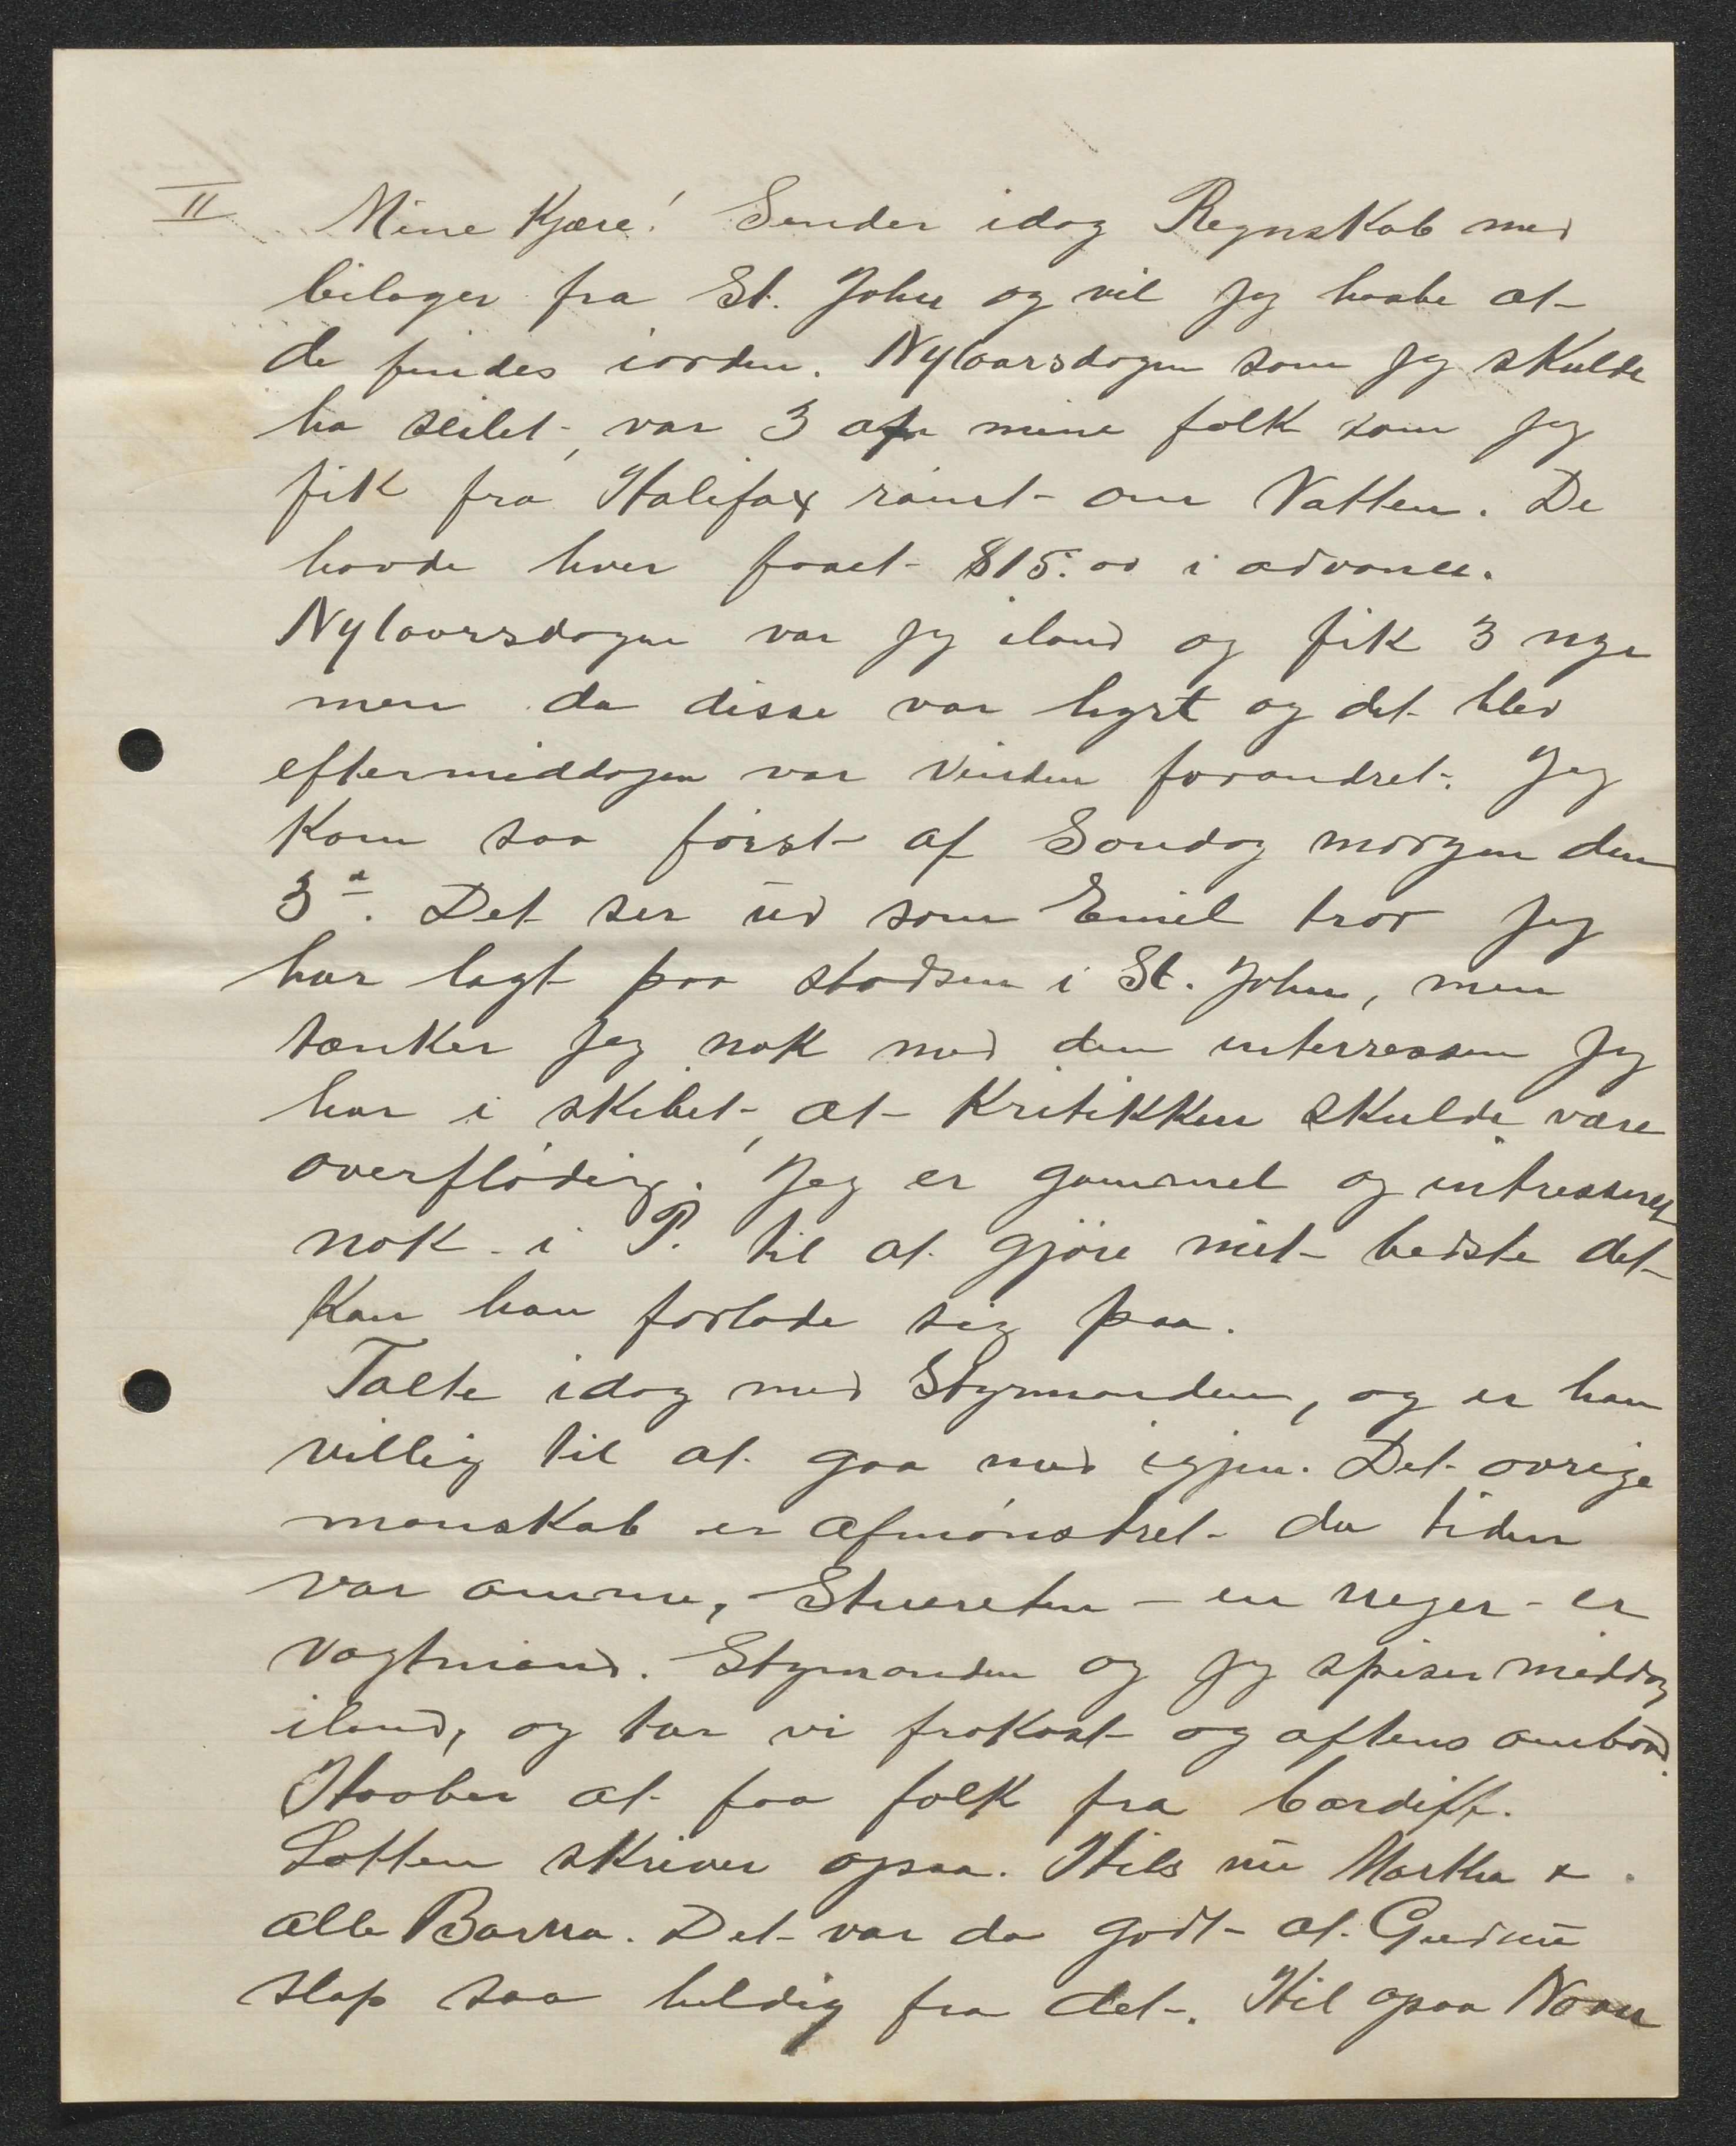 II Mine Kjære! Sender idag Regnskab med
bilager fra St. John og vil jeg haabe at
de findes iorden. Nytaarsdagen som jeg skulde
ha seilet, var 3 af mine folk som jeg
fik fra Halifax rømt om Natten. De
havde hver faaet $15.00 i advance.
Nytaarsdagen var jeg iland og fik 3 nye
men da disse var hyrt og det blev
eftermiddagen var vinden forandret. Jeg
kom saa først af Søndag morgen den
3d. Det ser ud som Emil tror jeg
har lagt paa stadsen i St. John, men
tænker jeg nok med den interressen jeg
har i skibet, at Kritikken skulde være
overflødig. Jeg er gammel og intresseret
nok i P. til at gjøre mit bedste det
kan han forlade sig paa.
Talte idag med Styrmanden, og er han
villig til at gaa med igjen. Det øvrige
manskab er afmønstret da tiden
var omme, Stuerten - en neger - er
vagtmand. Styrmanden og jeg spiser middag
iland, og tar vi frokost og aftens ombord.
Haaber at faa folk fra Cardiff.
Lotten skriver ogsaa. Hils nu Martha &
alle Barna. Det var da godt at
slap saa heldig fra det. Hil ogsaa